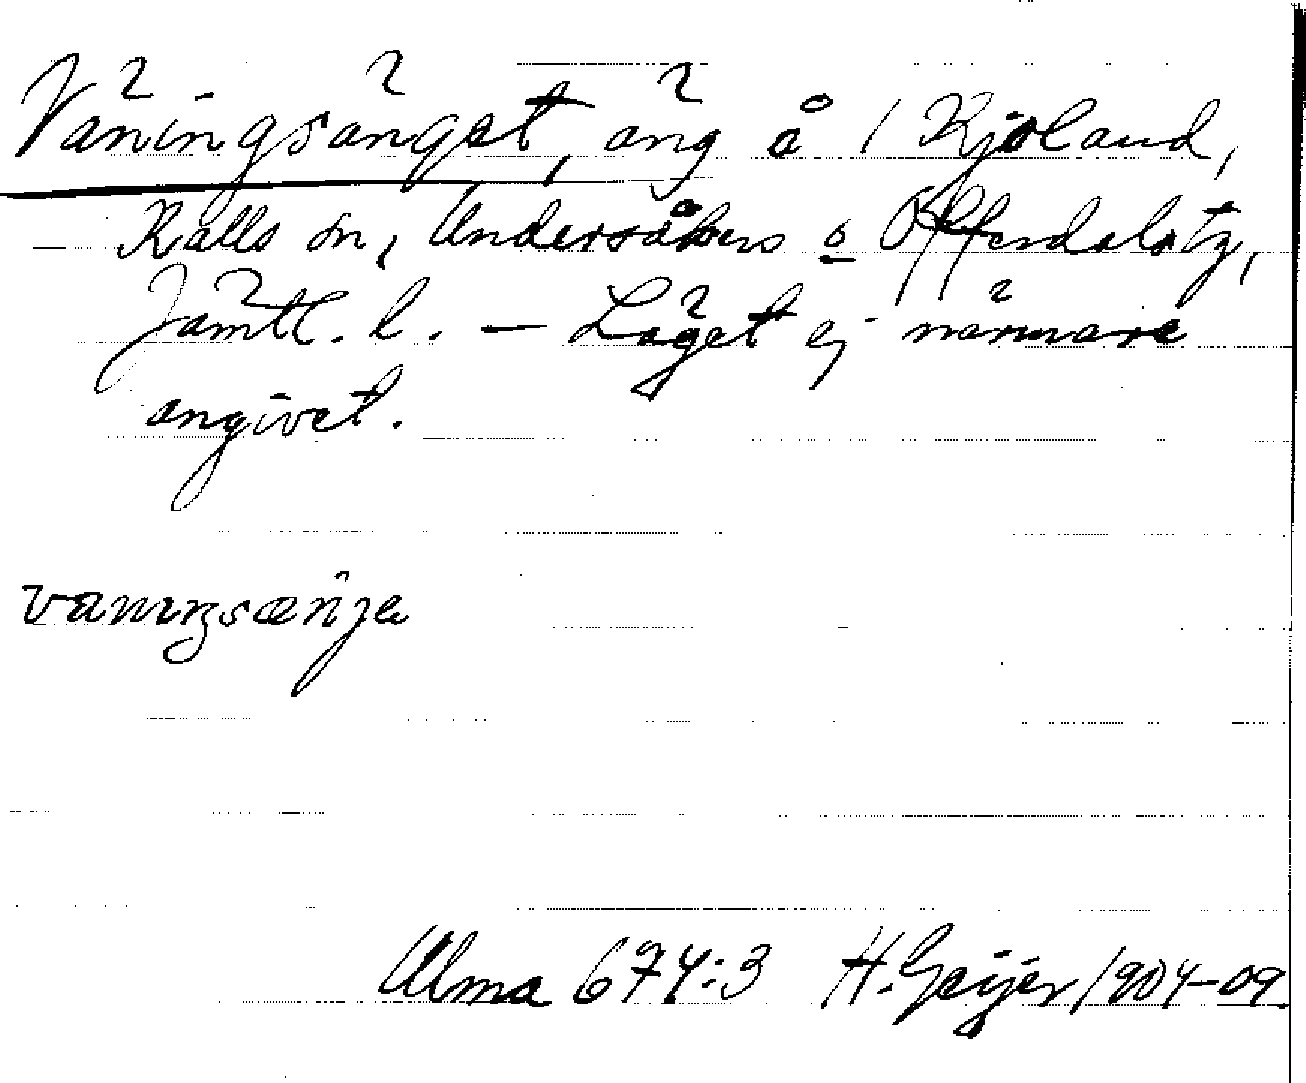 Väningsänget, äng å 1 Kjoland,
Kalls sn, Undersåkers o Offerdals tg,
Jämtl. l. — Läget ej närmare
angivet.
vanıŋsænʒa
Ulma 674:3 H. Geijer 1904-09